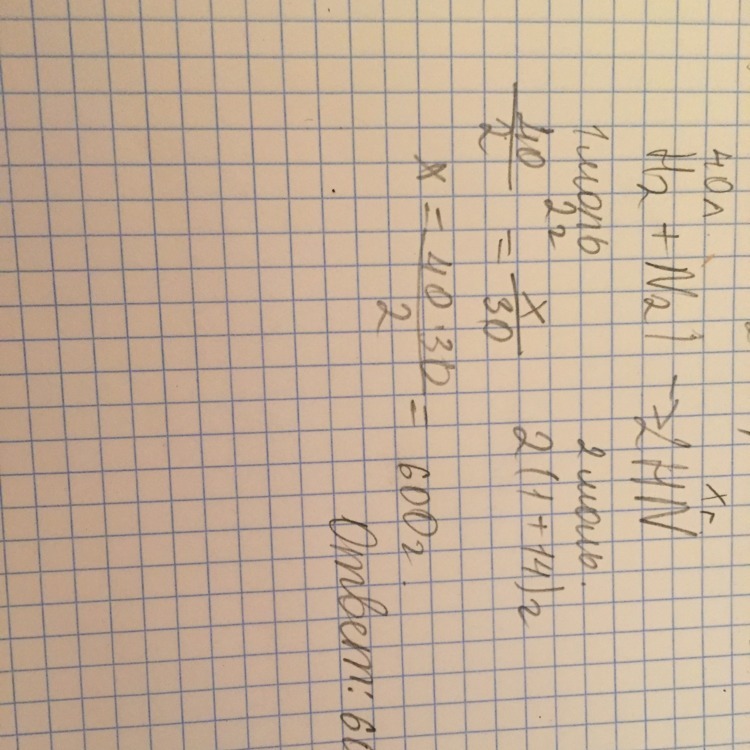 40л. xг
H₂ + N₂↑ → 2HN
1 моль 2 моль.
2г 2(1+14)г
40/2 = x/30
x = 40·30/2 = 600г.
Ответ: 60